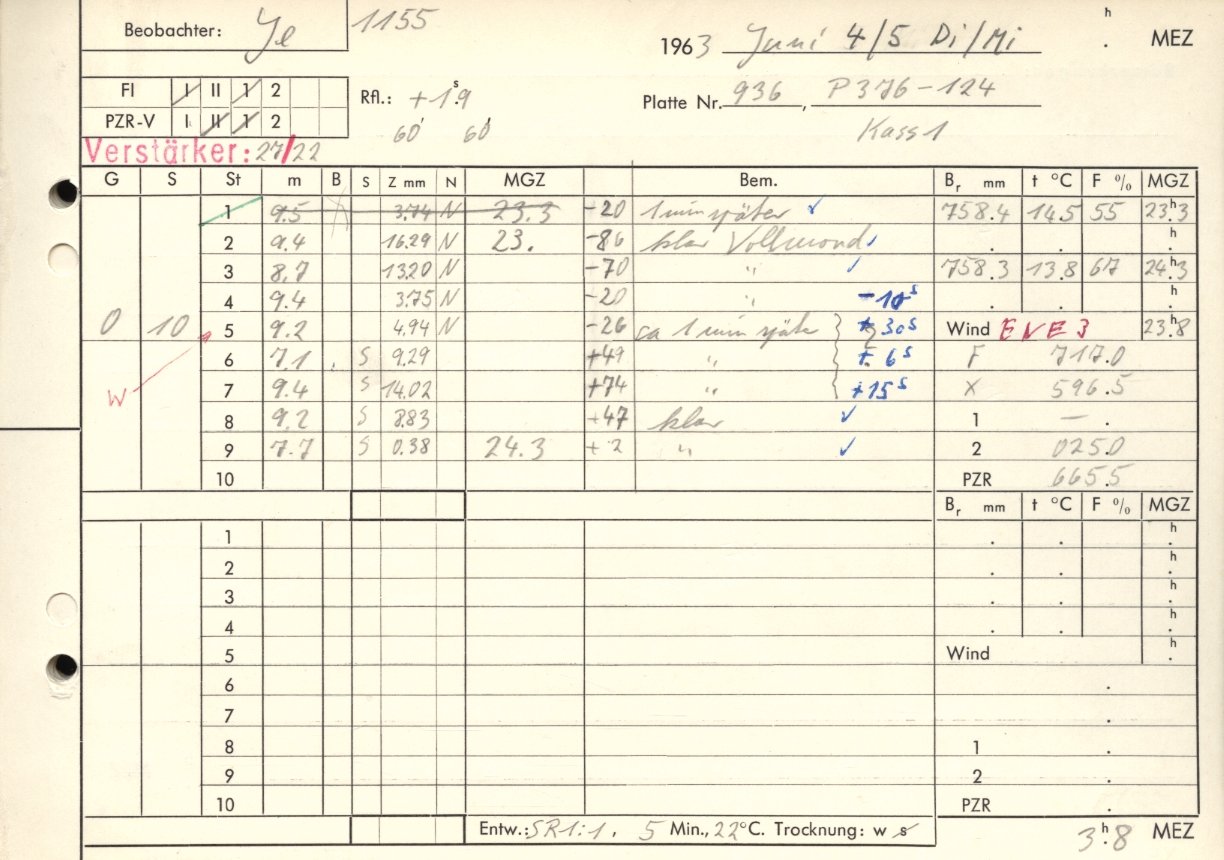 Beobachter: Je 1155
1963 Juni 4/5 Di/Mi . h MEZ
FI I II 1 2
PZR-V I II 1 2
Rfl.: +1s.9
60' 60'
Platte Nr. 936, P376-124
Kass 1
Verstärker: 27/22
G S St m B S Z mm N MGZ Bem. Br mm t °C F % MGZ
1 9.5 3.74 N 23.3 -20 1 min später ✓ 758.4 14.5 55 23h.3
2 9.4 16.29 N 23. -86 klar Vollmond ✓ . . h.
3 8.7 13.20 N -70 " ✓ 758.3 13.8 67 24h.3
4 9.4 3.75 N -20 " -10s . . h.
0 10 5 9.2 4.94 N -26 ca 1 min später + 30s Wind ENE 3 23h.8
6 7.1 S 9.29 +49 " + 6s F 717.0
W 7 9.4 S 14.02 +74 " +15s X 596.5
8 9.2 S 8.83 +47 klar ✓ 1 — .
9 7.7 S 0.38 24.3 + 2 " ✓ 2 025.0
10 PZR 665.5
Br mm t °C F % MGZ
1 . . h.
2 . . h.
3 . . h.
4 . . h.
5 Wind h.
6 .
7 .
8 1 .
9 2 .
10 PZR .
Entw.: SR1:1. 5 Min., 22°C. Trocknung: w s 3h.8 MEZ